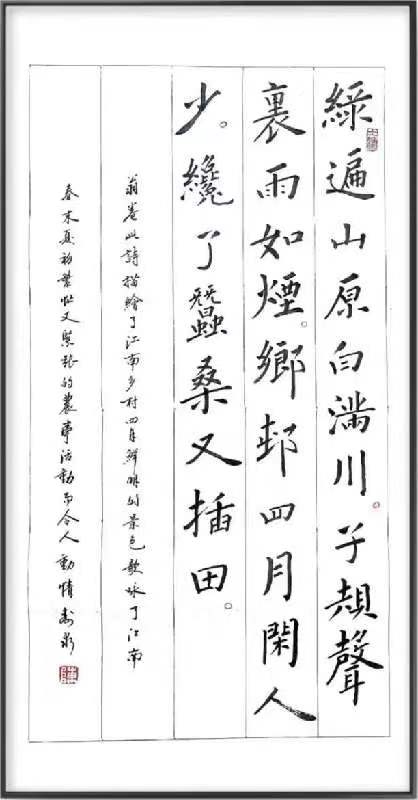 綠遍山原白滿川。子規聲
裏雨如煙。鄉邨四月閑人
少。纔了蠶桑又插田。
翁卷此詩描繪了江南乡村四月鮮明的景色歌咏了江南
春末夏初繁忙又緊張的農事活動而令人動情